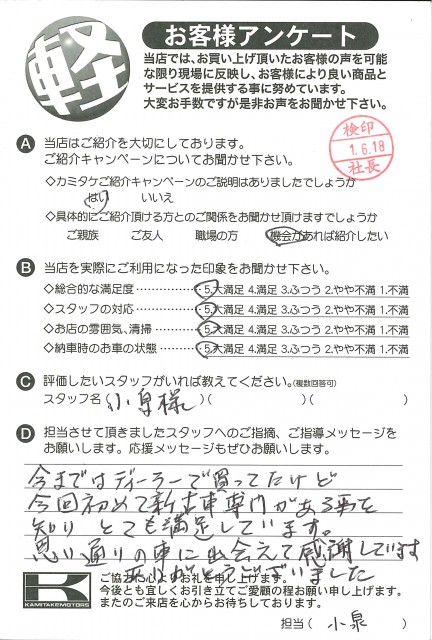 軽
お客様アンケート
当店では、お買い上げ頂いたお客様の声を可能
な限り現場に反映し、お客様により良い商品と
サービスを提供する事に努めています。
大変お手数ですが是非お声をお聞かせ下さい。
A 当店はご紹介を大切にしております。
ご紹介キャンペーンについてお聞かせ下さい。
検印
1.6.18
社長
◇カミタケご紹介キャンペーンのご説明はありましたでしょうか
はい いいえ
◇具体的にご紹介頂ける方とのご関係をお聞かせ頂けますでしょうか
ご親族 ご友人 職場の方 機会があれば紹介したい
B 当店を実際にご利用になった印象をお聞かせ下さい。
◇総合的な満足度 5.大満足 4.満足 3.ふつう 2.やや不満 1.不満
◇スタッフの対応 5.大満足 4.満足 3.ふつう 2.やや不満 1.不満
◇お店の雰囲気、清掃 5.大満足 4.満足 3.ふつう 2.やや不満 1.不満
◇納車時のお車の状態 5.大満足 4.満足 3.ふつう 2.やや不満 1.不満
C 評価したいスタッフがいれば教えてください。(複数回答可)
スタッフ名( 小泉様 )( )( )
D 担当させて頂きましたスタッフへのご指摘、ご指導メッセージを
お願いします。応援メッセージもぜひお願いします。
今まではディーラーで買ってたけど
今回初めて新古車専門がある事を
知り とても満足しています。
思い通りの車に出会えて感謝しています
ありがとうございました
K
KAMITAKEMOTORS
ご協力心よりお礼を申し上げます。
今後とも宜しくお引き立てご愛顧の程お願い申し上げます。
またのご来店を心からお待ちしております。
担当( 小泉 )